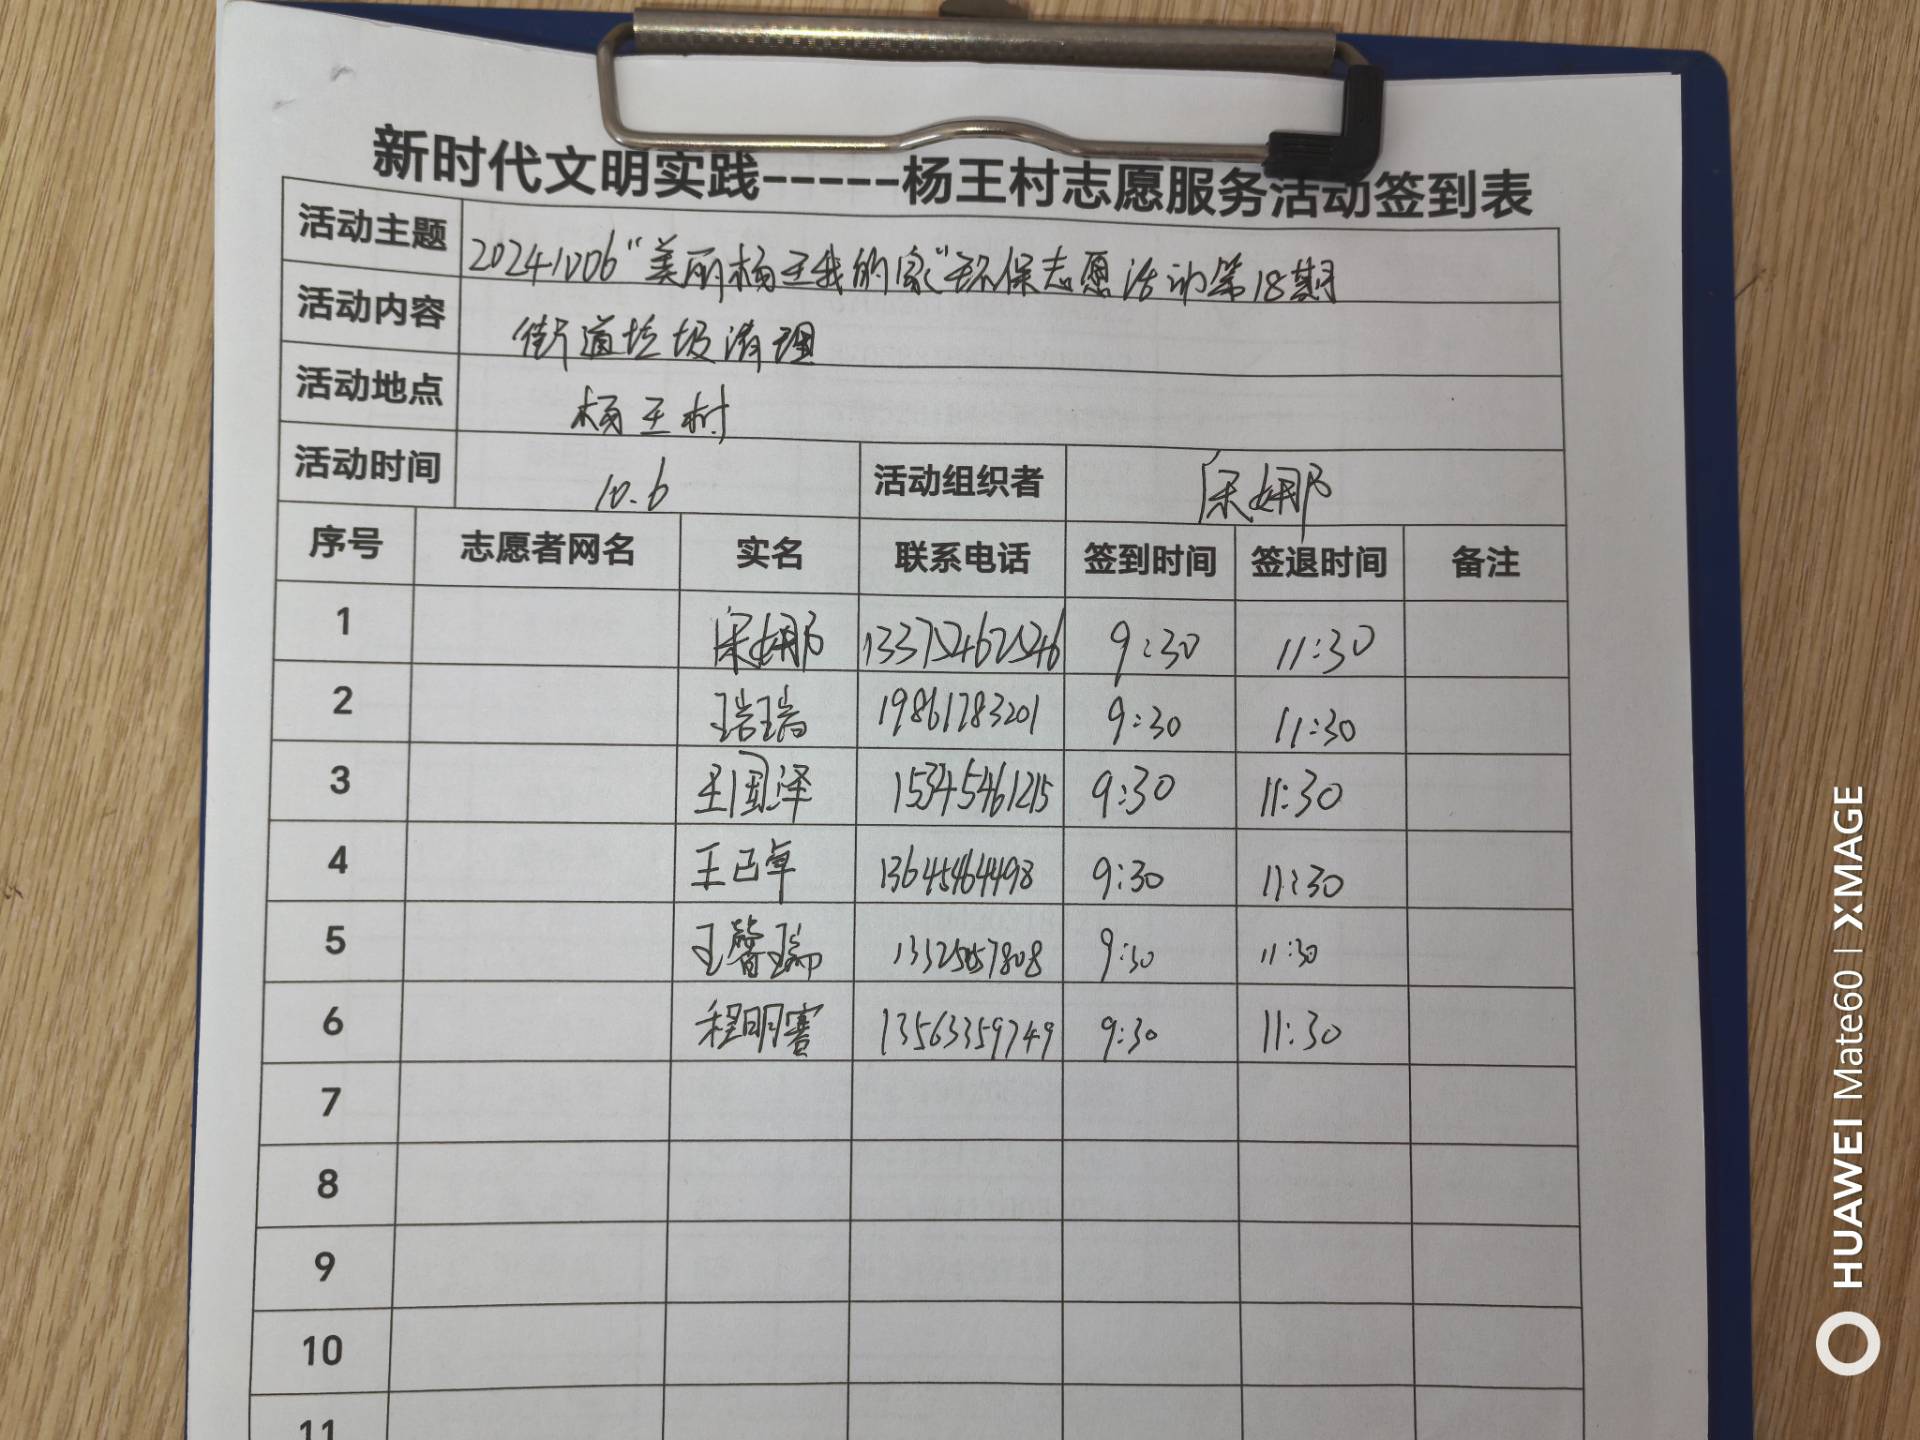 新时代文明实践-----杨王村志愿服务活动签到表
活动主题 20241006“美丽杨王我的家”环保志愿活动第18期
活动内容 街道垃圾清理
活动地点 杨王村
活动时间 10.6 活动组织者 宋娜
序号 志愿者网名 实名 联系电话 签到时间 签退时间 备注
1 宋娜 9:30 11:30
2 19861783201 9:30 11:30
3 王国泽 15345461215 9:30 11:30
4 王己卓 13645464498 9:30 11:30
5 王馨瑞 9:30 11:30
6 程明赛 13563359749 9:30 11:30
7
8
9
10
11
HUAWEI Mate60 | XMAGE